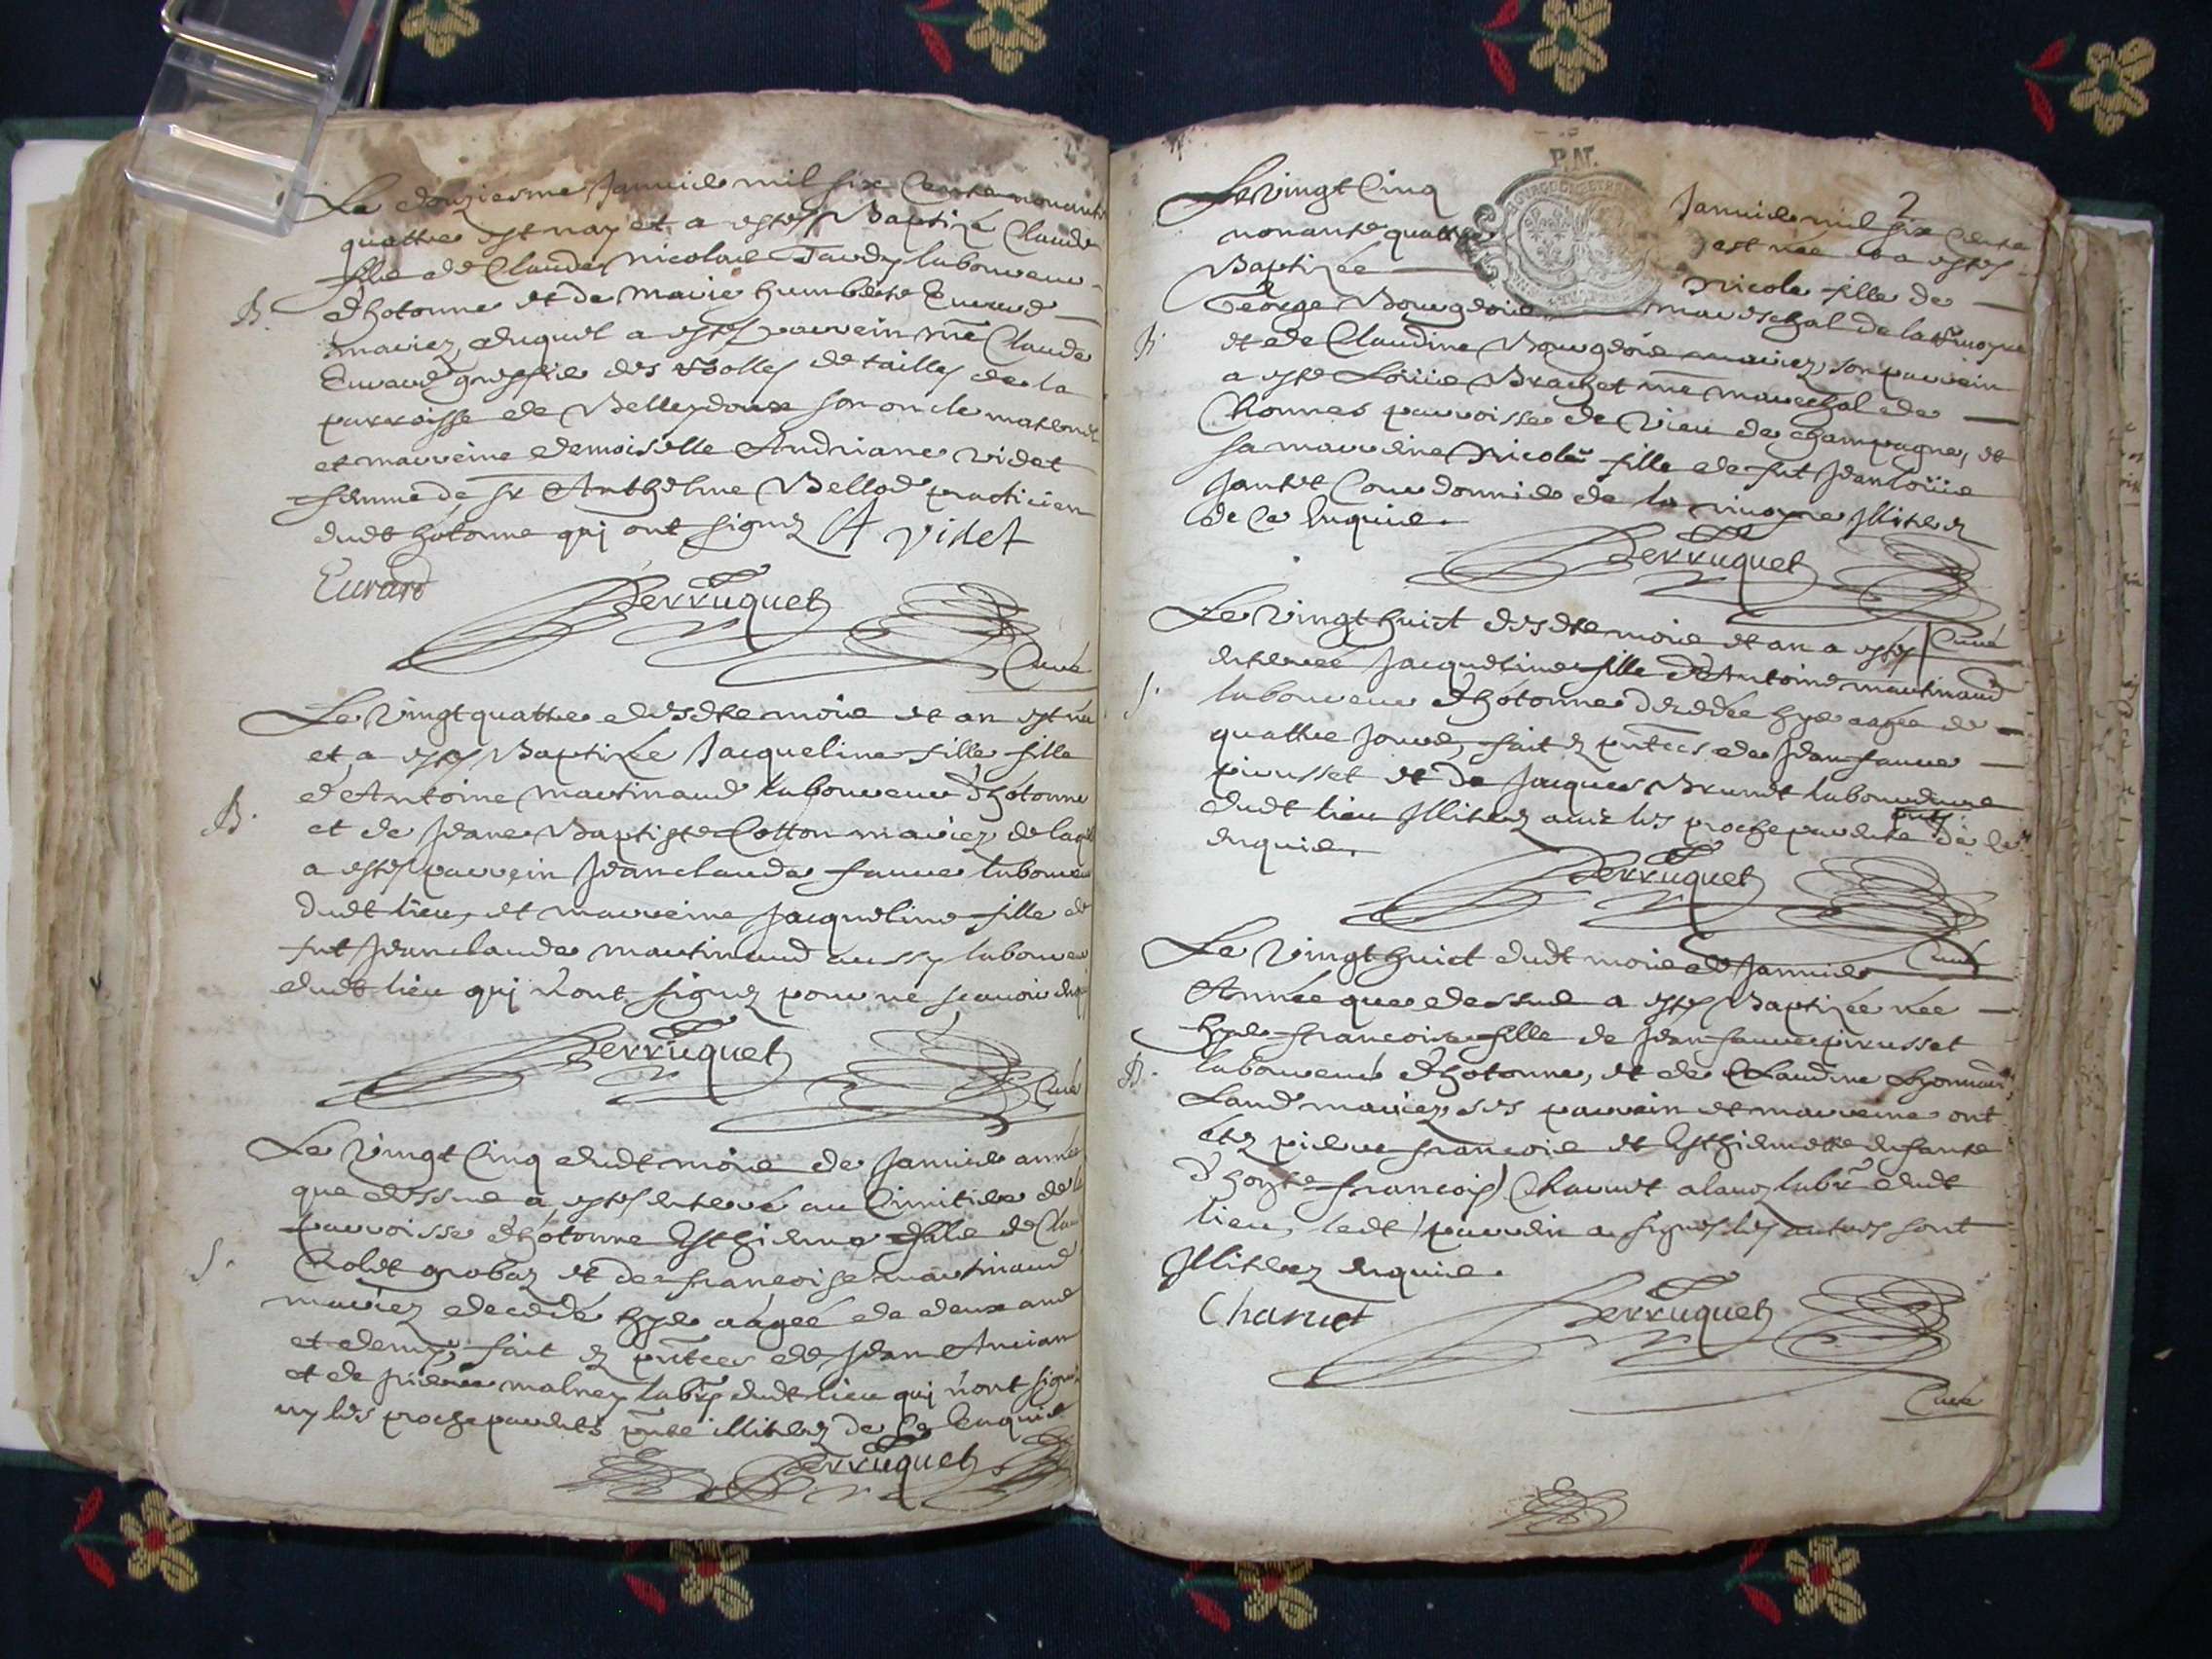 Le douziesme Januier mil six Cents nonante
quattre est nay et a esté Baptizé Claude
fils de Claude nicolas Tardy laboureur
d'hotonne et de marie humberte Euurard
mariez, duquel a esté parrein me Claude
Euurard greffier des Rolles de tailles de la
parroisse de Belleydoux son oncle maternel
B.
et marreine demoiselle Andriane videt
femme de sr Anthelme Bellod practicien
dudt hotonne qui ont signez A videt
Euurard
Perruquet
Curé
Le Vingt quattre desdts mois et an est née
et a esté Baptizée Jacqueline fille fille
d'Antoine martinaud laboureur d'hotonne
B.
et de Jeane Baptiste Cotton mariez de laqlle
a esté parrein Jean claude fauure laboureur
dudt lieu, et marreine Jacqueline fille de
fut Jean claude martinaud aussy laboureur
dudt lieu qui n'ont signez pour ne scauoir enquis
Perruquet
Curé
Le Vingt Cinq dudt mois de Januier année
que dessus a esté enterré au Cimitiere de la
parroisse d'hotonne Esthienne fille de
S.
Colet grobaz et de francoise martinaud
mariez decedé hyer aagée de deux ans
et demy, fait ez pntces de Jean Ancian
et de pierre malney labrs dudt lieu qui n'ont signé
ny les proche parents pnts illiterez de Ce Enquis
Perruquet
2
P.N.
Le Vingt Cinq Januier mil six Cents
nonante quattre est née et a esté
Baptizée Nicole fille de
George Bourgeois mareschal de la
B.
et de Claudine Bourgeois mariez, son parrein
a esté Loüis Brachet me mareschal de
Chonnes parroisse de Vieu de champagne, et
sa marreine Nicole fille de fut Jean loüis
Jantet Courdonnier de la Illiterez
de Ce Enquis.
Perruquet
Curé
Le Vingt huict desdts mois et an a esté
enterrée Jacqueline fille d'Antoine martinaud
S.
laboureur d'hotonne decedée hyer aagée de
quattre jours, fait ez pntces de Jean fauure
pirusset et de Jacques Brunet laboureurs
dudt lieu Illiterez auec les proche parents pnts de Ce
enquis.
Perruquet
Curé
Le Vingt huict dudt mois de Januier
Année que dessus a esté Baptizée née
hyer francoise fille de Jean fauure pirusset
B.
laboureur d'hotonne, et de Claudine
Land mariez, ses parrein et marreine ont
étez pierre francois et Esthiennette enfants
d'honte francois Charuet labr dudt
lieu, ledt parrein a signez les autres sont
Illiterez enquis.
Charuet
Perruquet
Curé